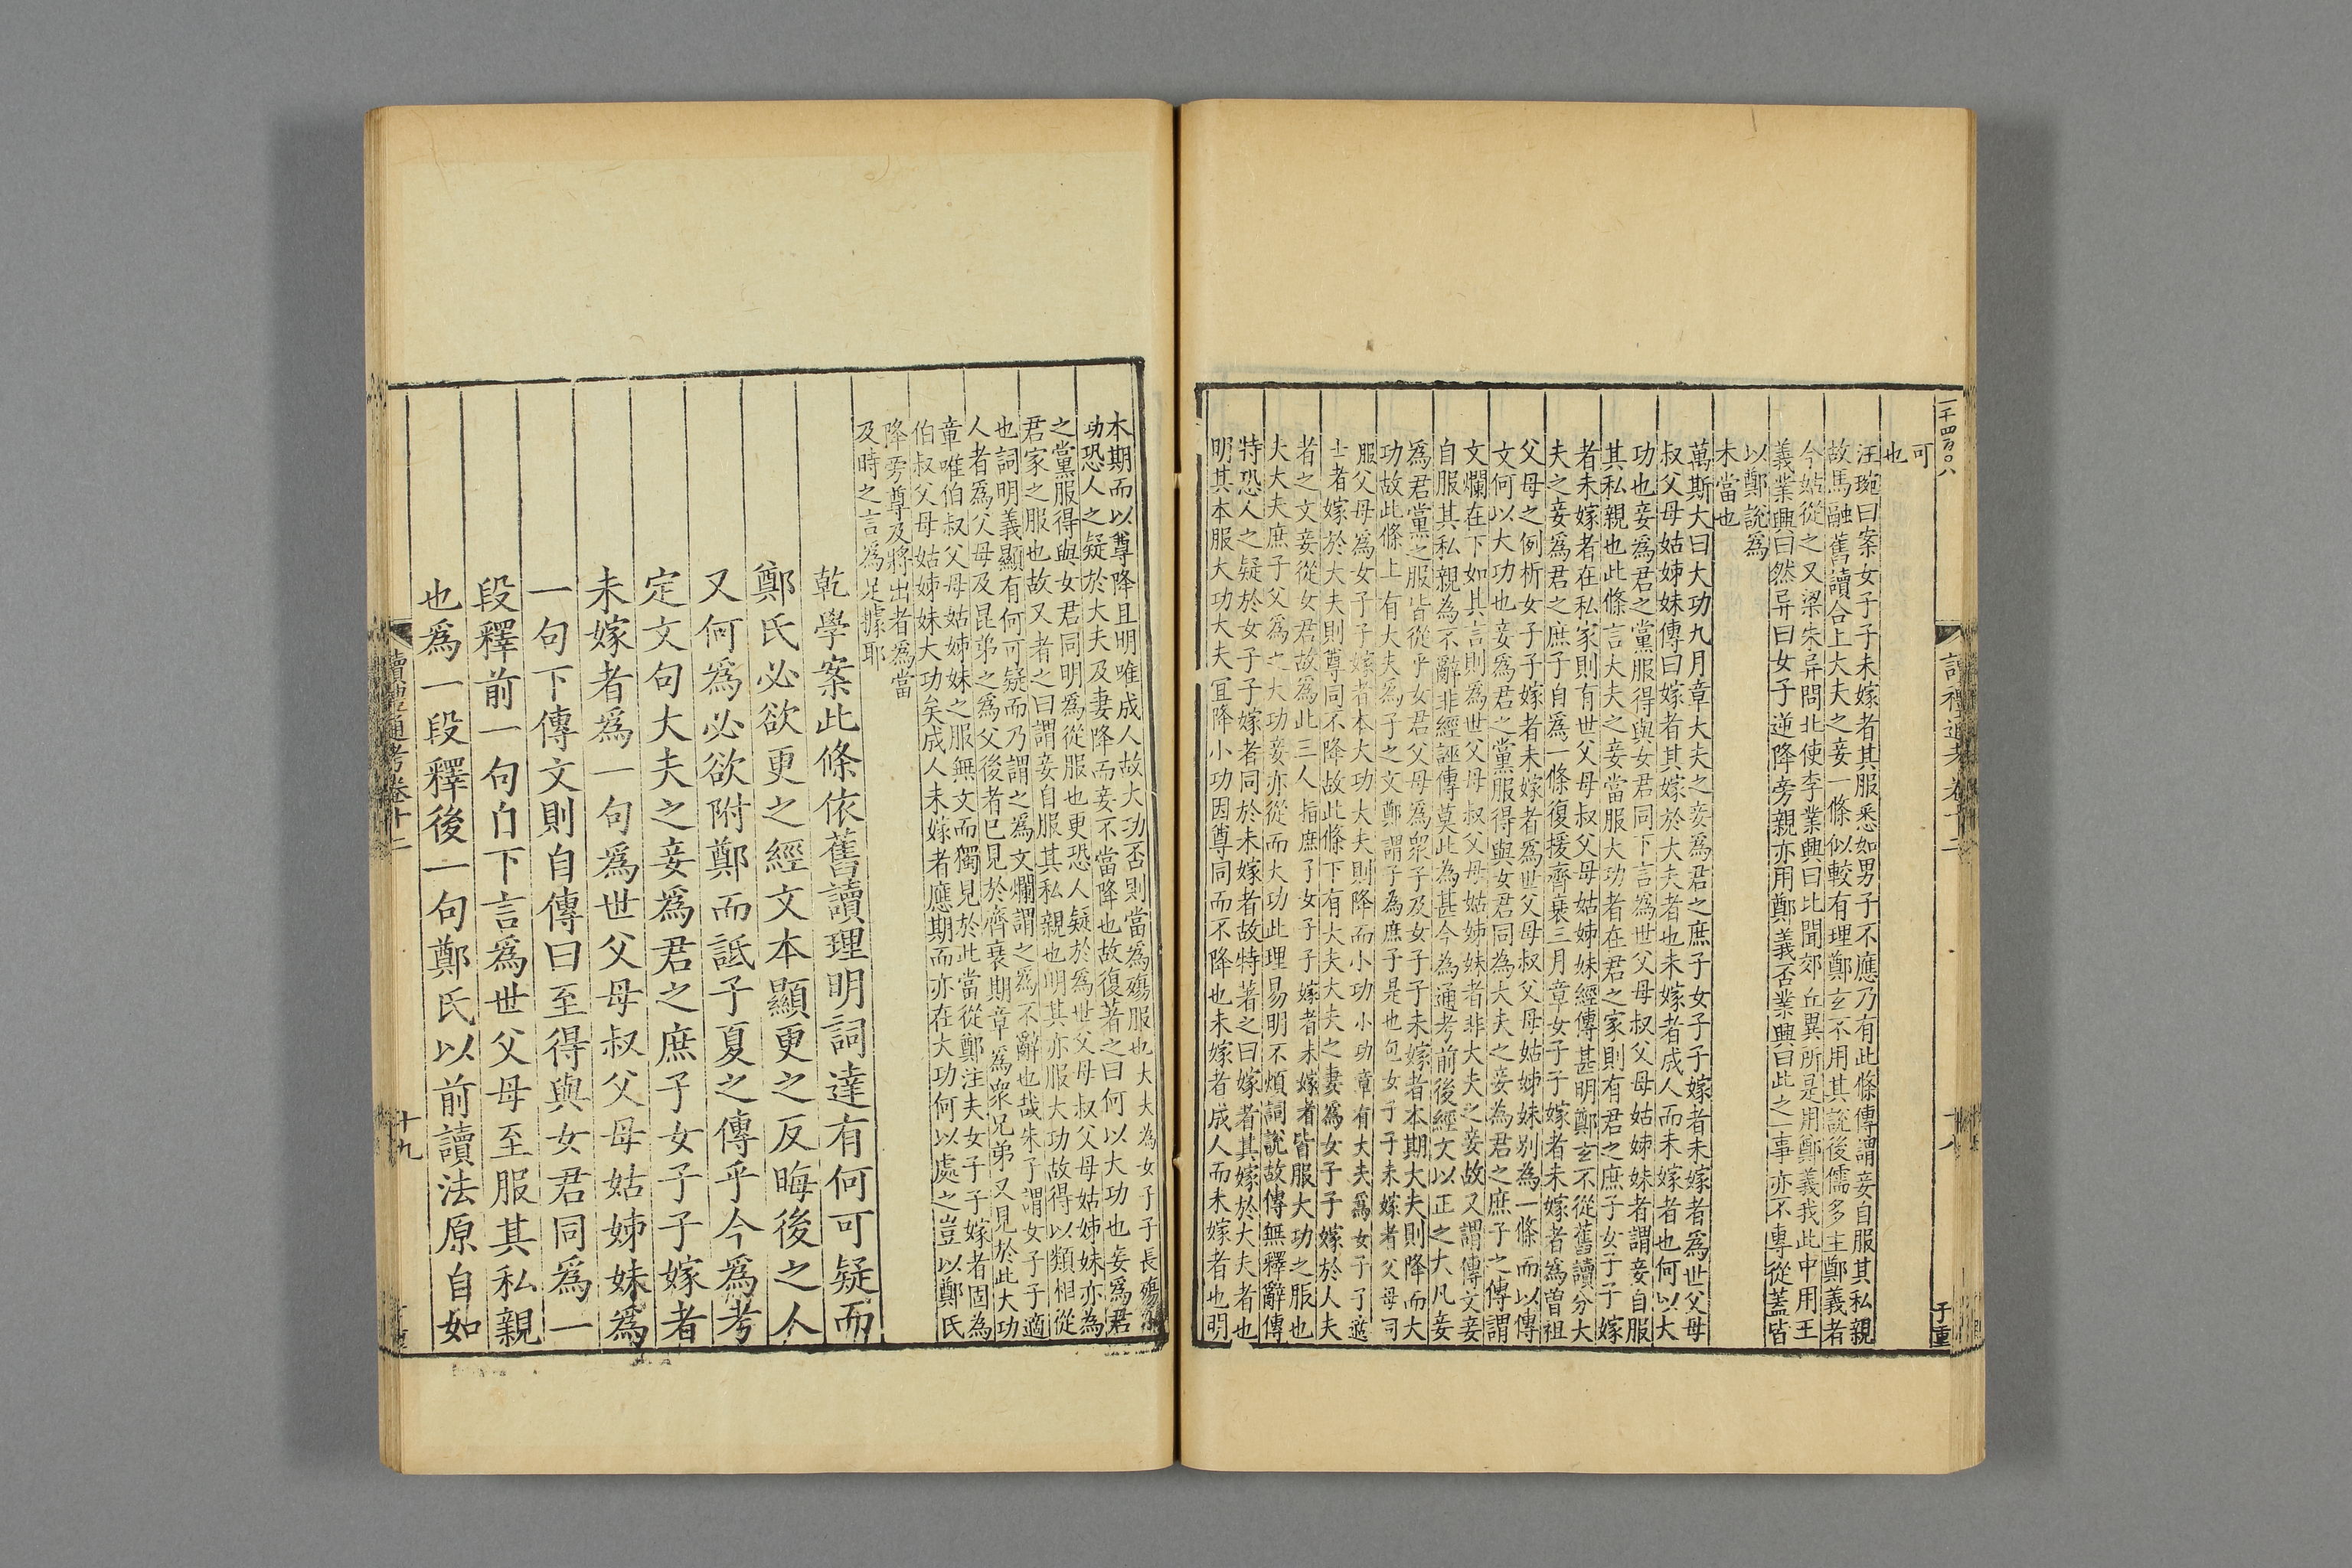 一千四百〇八
讀禮通考卷十二
十八
子重
可
也
汪琬曰案女子子未嫁者其服悉如男子不應乃有此條傳謂妾自服其私親
故馬融舊讀合上大夫之妾一條似較有理鄭玄不用其說後儒多主鄭義者
今姑從之又梁朱异問北使李業興曰比聞郊丘異所是用鄭義我此中用王
義業興曰然异曰女子逆降旁親亦用鄭義否業興曰此之一事亦不專從蓋皆
以鄭說為
未當也
萬斯大曰大功九月章大夫之妾爲君之庶子女子子嫁者未嫁者爲世父母
叔父母姑姊妹傳曰嫁者其嫁於大夫者也未嫁者成人而未嫁者也何以大
功也妾爲君之黨服得與女君同下言爲世父母叔父母姑姊妹者謂妾自服
其私親也此條言大夫之妾當服大功者在君之家則有君之庶子女子子嫁
者未嫁者在私家則有世父母叔父母姑姊妹經傳甚明鄭玄不從舊讀分大
夫之妾爲君之庶子自爲一條復援齊衰三月章女子子嫁者未嫁者爲曾祖
父母之例析女子子嫁者未嫁者爲世父母叔父母姑姊妹別為一條而以傳
文何以大功也妾爲君之黨服得與女君同為大夫之妾為君之庶子之傳謂
文爛在下如其言則爲世父母叔父母姑姊妹者非大夫之妾故又謂傳文妾
自服其私親為不辭非經誣傳莫此為甚今為通考前後經文以正之大凡妾
爲君黨之服皆從乎女君父母爲眾子及女子子未嫁者本期大夫則降而大
功故此條上有大夫爲子之文鄭謂子為庶子是也句女子子未嫁者父母同
服父母爲女子子嫁者本大功大夫則降而小功小功章有大夫爲女子子適
士者嫁於大夫則尊同不降故此條下有大夫大夫之妻爲女子子嫁於人夫
者之文妾從女君故爲此三人指庶子女子子嫁者未嫁者皆服大功之服也
大大夫庶子父爲之大功妾亦從而大功此理易明不煩詞說故傳無釋辭傳
特恐人之疑於女子子嫁者同於未嫁者故特著之曰嫁者其嫁於大夫者也
明其本服大功大夫宜降小功因尊同而不降也未嫁者成人而未嫁者也明
本期而以尊降且明唯成人故大功否則當爲殤服也大夫為女子子長殤
功恐人之疑於大夫及妻降而妾不當降也故復著之曰何以大功也妾爲君
之黨服得與女君同明爲從服也更恐人疑於爲世父母叔父母姑姊妹亦為
君家之服也故又者之曰謂妾自服其私親也明其亦服大功故得以類相從
也詞明義顯有何可疑而乃謂之爲文爛謂之爲不辭也哉朱子謂女子子適
人者爲父母及昆弟之爲父後者已見於齊衰期章爲衆兄弟又見於此大功
章唯伯叔父母姑姊妹之服無文而獨見於此當從鄭注夫女子子嫁者固為
伯叔父母姑姊妹大功矣成人未嫁者應期而亦在大功何以處之豈以鄭氏
降旁尊及將出者爲當
及時之言爲足據耶
乾學案此條依舊讀理明詞達有何可疑而
鄭氏必欲更之經文本顯更之反晦後之人
又何爲必欲附鄭而詆子夏之傳乎今爲考
定文句大夫之妾爲君之庶子女子子嫁者
未嫁者爲一句爲世父母叔父母姑姊妹爲
一句下傳文則自傳曰至得與女君同爲一
段釋前一句自下言爲世父母至服其私親
也爲一段釋後一句鄭氏以前讀法原自如
讀禮通考卷十二
十九